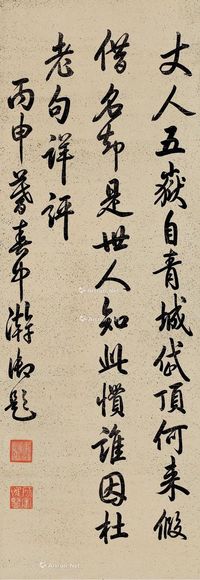 丈人五嶽自青城岱頂何来假
借名却是世人知此慣誰因杜
老句詳評
丙申暮春中澣御題